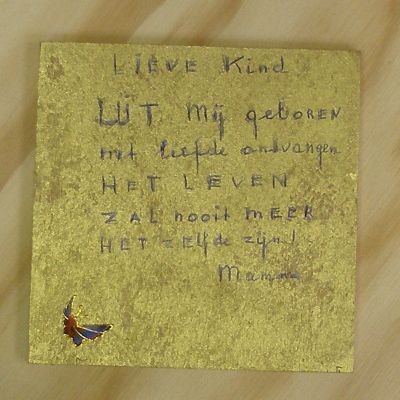 LIEVE Kind
UiT Mij geboREN
met liefde ontvangen
HET LEVEN
ZAL nooit MEER
HET zElfde zijn!
Mamma